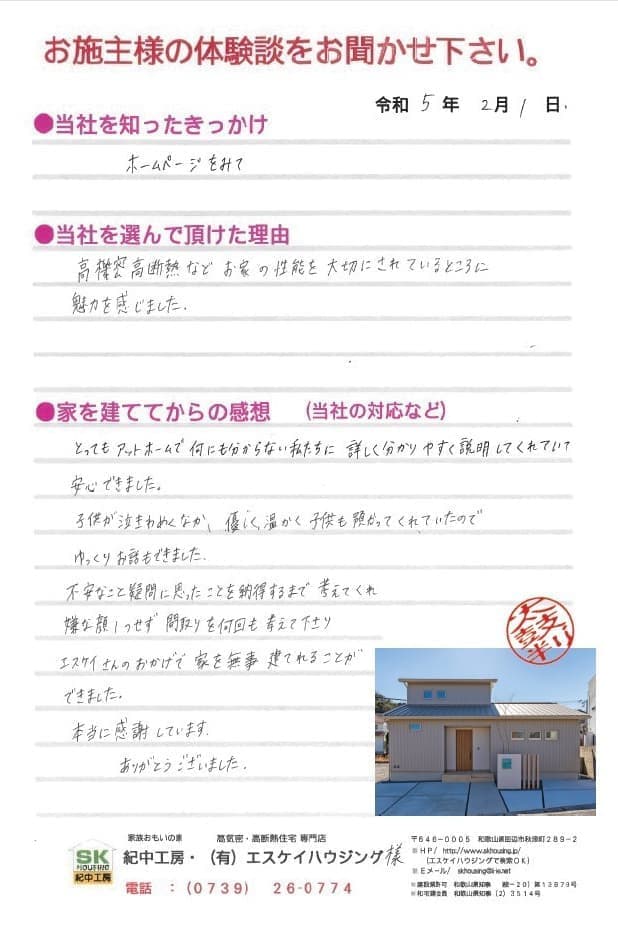 お施主様の体験談をお聞かせ下さい。
令和 5 年 2月 1 日.
●当社を知ったきっかけ
ホームページをみて
●当社を選んで頂けた理由
高機密高断熱など お家の性能を大切にされているところに
魅力を感じました.
●家を建ててからの感想 (当社の対応など)
とってもアットホームで何にも分からない私たちに 詳しく分かりやすく説明してくれていて
安心できました。
子供が泣きわめくなか、優しく、温かく子供も預かってくれていたので
ゆっくりお話もできました.
不安なこと疑問に思ったことを納得するまで 考えてくれ
嫌な顔1つせず 間取りを何回も考えて下さり
エスケイさんのおかげで 家を無事 建てれることが
できました.
本当に感謝しています.
ありがとうございました.
家族おもいの家 高気密・高断熱住宅 専門店
SK
HOUSING
紀中工房
紀中工房・(有)エスケイハウジング様
電話 :(0739) 26-0774
〒646-0005 和歌山県田辺市秋津町289-2
HP/ http://www.skhousing.jp/
(エスケイハウジングで検索OK)
Eメール/ skhousing@i-k.net
建設業許可 和歌山県知事 (般-20) 第13879号
和歌山県知事 (2) 3514号